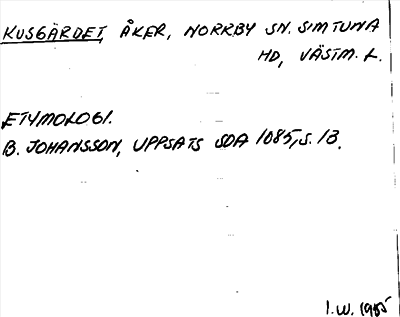 KUSGÄRDET, ÅKER, NORRBY SN. SIMTUNA
HD, VÄSTM. L.
ETYMOLOGI.
B. JOHANSSON, UPPSATS SOA 1085, S. 13.
I.W. 1985